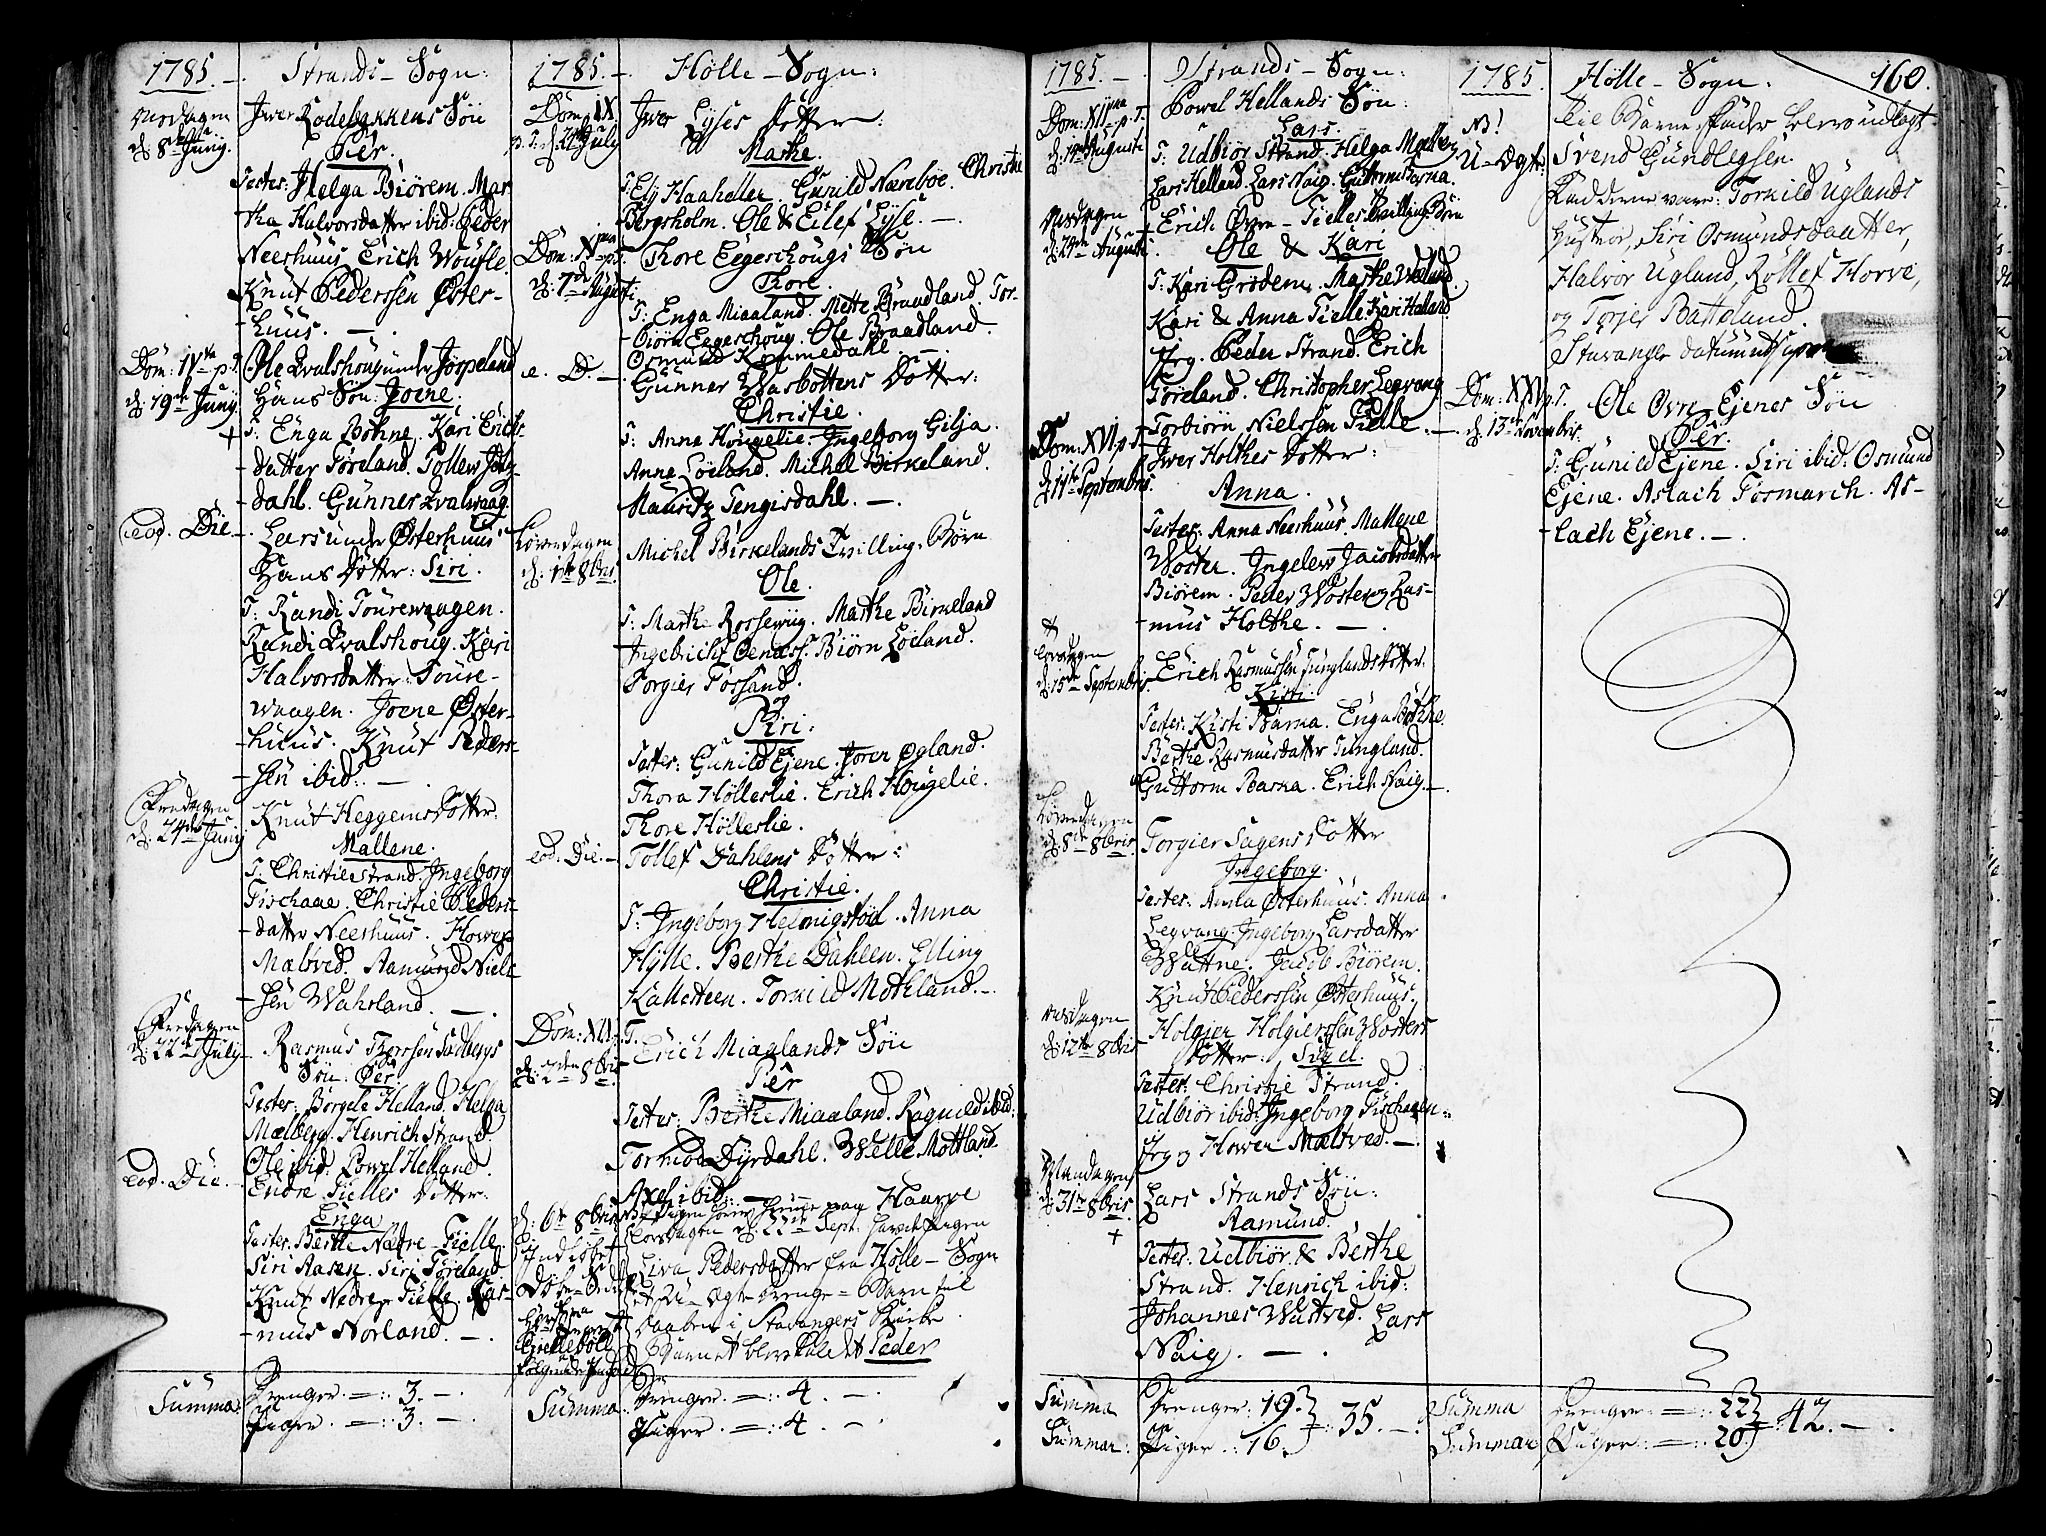 1785. — Strands — Sogn:
Onsdagen d: 8de Junij. Iver Rodebakkens Søn
Peer.
Tester: Helga Biørem. Mar-
tha Halvorsdatter ibid: Peder
Neerhuus, Erich Woufle,
Knut Pederssen Øster-
huus. —
Dom: IVta p. T. d: 19de Junij Ole Qvalshoug under Jørpeland
Hans Søn: Joene.
T: Enga Bøhne, Kari Erichs-
datter Tøreland. Tollew
dahl. Gunner Qvalwaag.
eod. Die — Lars under Østerhuus
Hans Dotter: Siri.
T: Randi Tourewaagen.
Randi Qvalshoug. Kari
Halvorsdatter: Toure-
waagen. Joene Øster-
huus. Knut Peders-
sen ibid: —
Fredagen d: 24de Junij Knut Heggems Dotter:
Mallene.
T: Christie Strand. Ingeborg
Fischaae. Christie Peders-
datter Neerhuus. Hower
Mæltved. Aamund Niels-
sen Wahrland. —
Fredagen d: 22de July Rasmus Thorssøn Sudbergs
Søn: Peer.
Tester: Borgele Helland. Helga
Mælberg. Henrich Strand.
Ole ibid: Powel Helland.
eod. Die. — Endre Tielles Dotter:
Enga
Tester: Berthe Nedre-Tielle,
Siri Aasen. Siri Tøreland
Knut Nedre-Tielle. Ras-
mus Norland. —
Summa: Drenger. =: 3. —
Piger. =: 3. —
1785. — Hølle — Sogn:
Dom: IX. p. T. d: 24de July Iver Lyses Dotter:
Marthe.
T: Ely Haaheller. Gunild Næreboe. Christie
Bergsholm. Ole & Eilef Lyse. —
Dom: XIma p. T. d: 7de Augusti Thore Eegeschougs Søn
Thore.
T: Enga Miaaland. Mette Braadland. Tor-
biörn Eegeschoug. Ole Braadland —
Osmund Kommedahl. —
e. D. — Gunner Wasbottens Dotter:
Christie.
T: Anna Hougelie. Ingeborg Gilja.
Anna Løeland. Michel Birkeland.
Mauritz Tengisdahl. —
Løverdagen d: 1te 8bris Michel Birkelands Tvilling-Børn
Ole.
T: Marthe Rossewiig. Marthe Birkeland
Ingebricht Biörn Løeland.
Torgier Tøssand.
Siri.
Tester: Gunild Ejene. Joren Øgland.
Thora Hølleslie. Erich Hougelie.
Thore Hølleslie.
eod. Die. — Tollef Dahlens Dotter:
Christie.
T: Ingeborg Helmigstöel. Anna
Hylle. Berthe Dahlen. Elling
Kalleteen. Torkild Mothland. —
Dom: XIX. T. d: 2den 8bris Erich Miaalands Søn
Peer
Tester: Berthe Miaaland. Ragnild ibid:
Tormoe Dyrdahl. Welle Mottland
Axel ibid: —
d: 6te 8bris
Torsdagen d: 22de Sept: havet Pigen
Liva Pedersdatter fra Hølle — Sogn
et U-Ægte Drenge-Barn til
Daaben i Stavangers Kirke
Barnet blev kaldet Peder
Summa: Drenger. =: 4. —
Piger. =: 4. —
1785. — Strands — Sogn:
Dom: XIIma p. T. d: 14de Augusti Powel Hellands Søn:
Lars.
T: Udbiör Strand. Helga Mælberg
Lars Helland. Lars Naig. Guttorm Barka.
Onsdagen d: 24de Augusti Erich Øvre-Tielles Tvilling Børn
Ole & Kari
T: Kari Grödem. Marthe Woeland.
Kari & Anna Tielle. Kari Halland
Peder Strand. Erich
Tøreland. Christopher Legvang
Torbiörn Nielssen Tielle. —
Dom: XVI p. T. d: 11te Septembris. Iver Holthes Dotter:
Anna.
Tester: Anna Neerhuus. Mallene
Woster. Ingelew Jacobsdatter
Biörem. Peder Woster og Ras-
mus Holthe. —
Torsdagen d: 15de Septembris. Erich Rasmussen Tunglands Dotter:
Kisti.
Tester: Kisti Barka. Enga Böthe
Berthe Rasmusdatter Tungland.
Guttorm Barka. Erich Naig. —
Løverdagen d: 8de 8bris Torgier Sagens Dotter
Ingeborg.
Tester: Amla Østerhuus. Anna
Legvang. Ingeborg Larsdatter
Wattne. Jacob Biörem.
Knut Pederssen Østerhuus.
Onsdagen d: 12te 8bris Holgier Holgierssen Wosters
Dotter: Sigel.
Tester: Christie Strand.
Udbiör ibid: Ingeborg Fischaaen
Hower Mæltved. —
Mandagen d: 31te 8bris. Lars Strands Søn:
Aamund.
Tester: Udbiör & Berthe
Strand. Henrich ibid:
Johannes Wastved. Lars
Naig. —
Summa Summar: Drenger: 19. Piger: 16. } =: 35. —
1785. Hølle — Sogn. 160.
NB! U-Ægte
Svend Gundlegsen.
Fadderne vare: Torkild Uglands
Hustroe, Siri Osmundsdaatter,
Halvor Ugland, Rollef Horve,
og Torjer Batteland.
Stavanger datum ut supra
Dom: XXV p. T. d: 13de Novembris. Ole Øvre-Ejenes Søn
Peer.
T: Gunild Ejene. Siri ibid: Osmund
Ejene. Aslach Tosmarch. As-
lach Ejene. —
Summa Summar Drenger =: 22 Piger =: 20 } =: 42. —